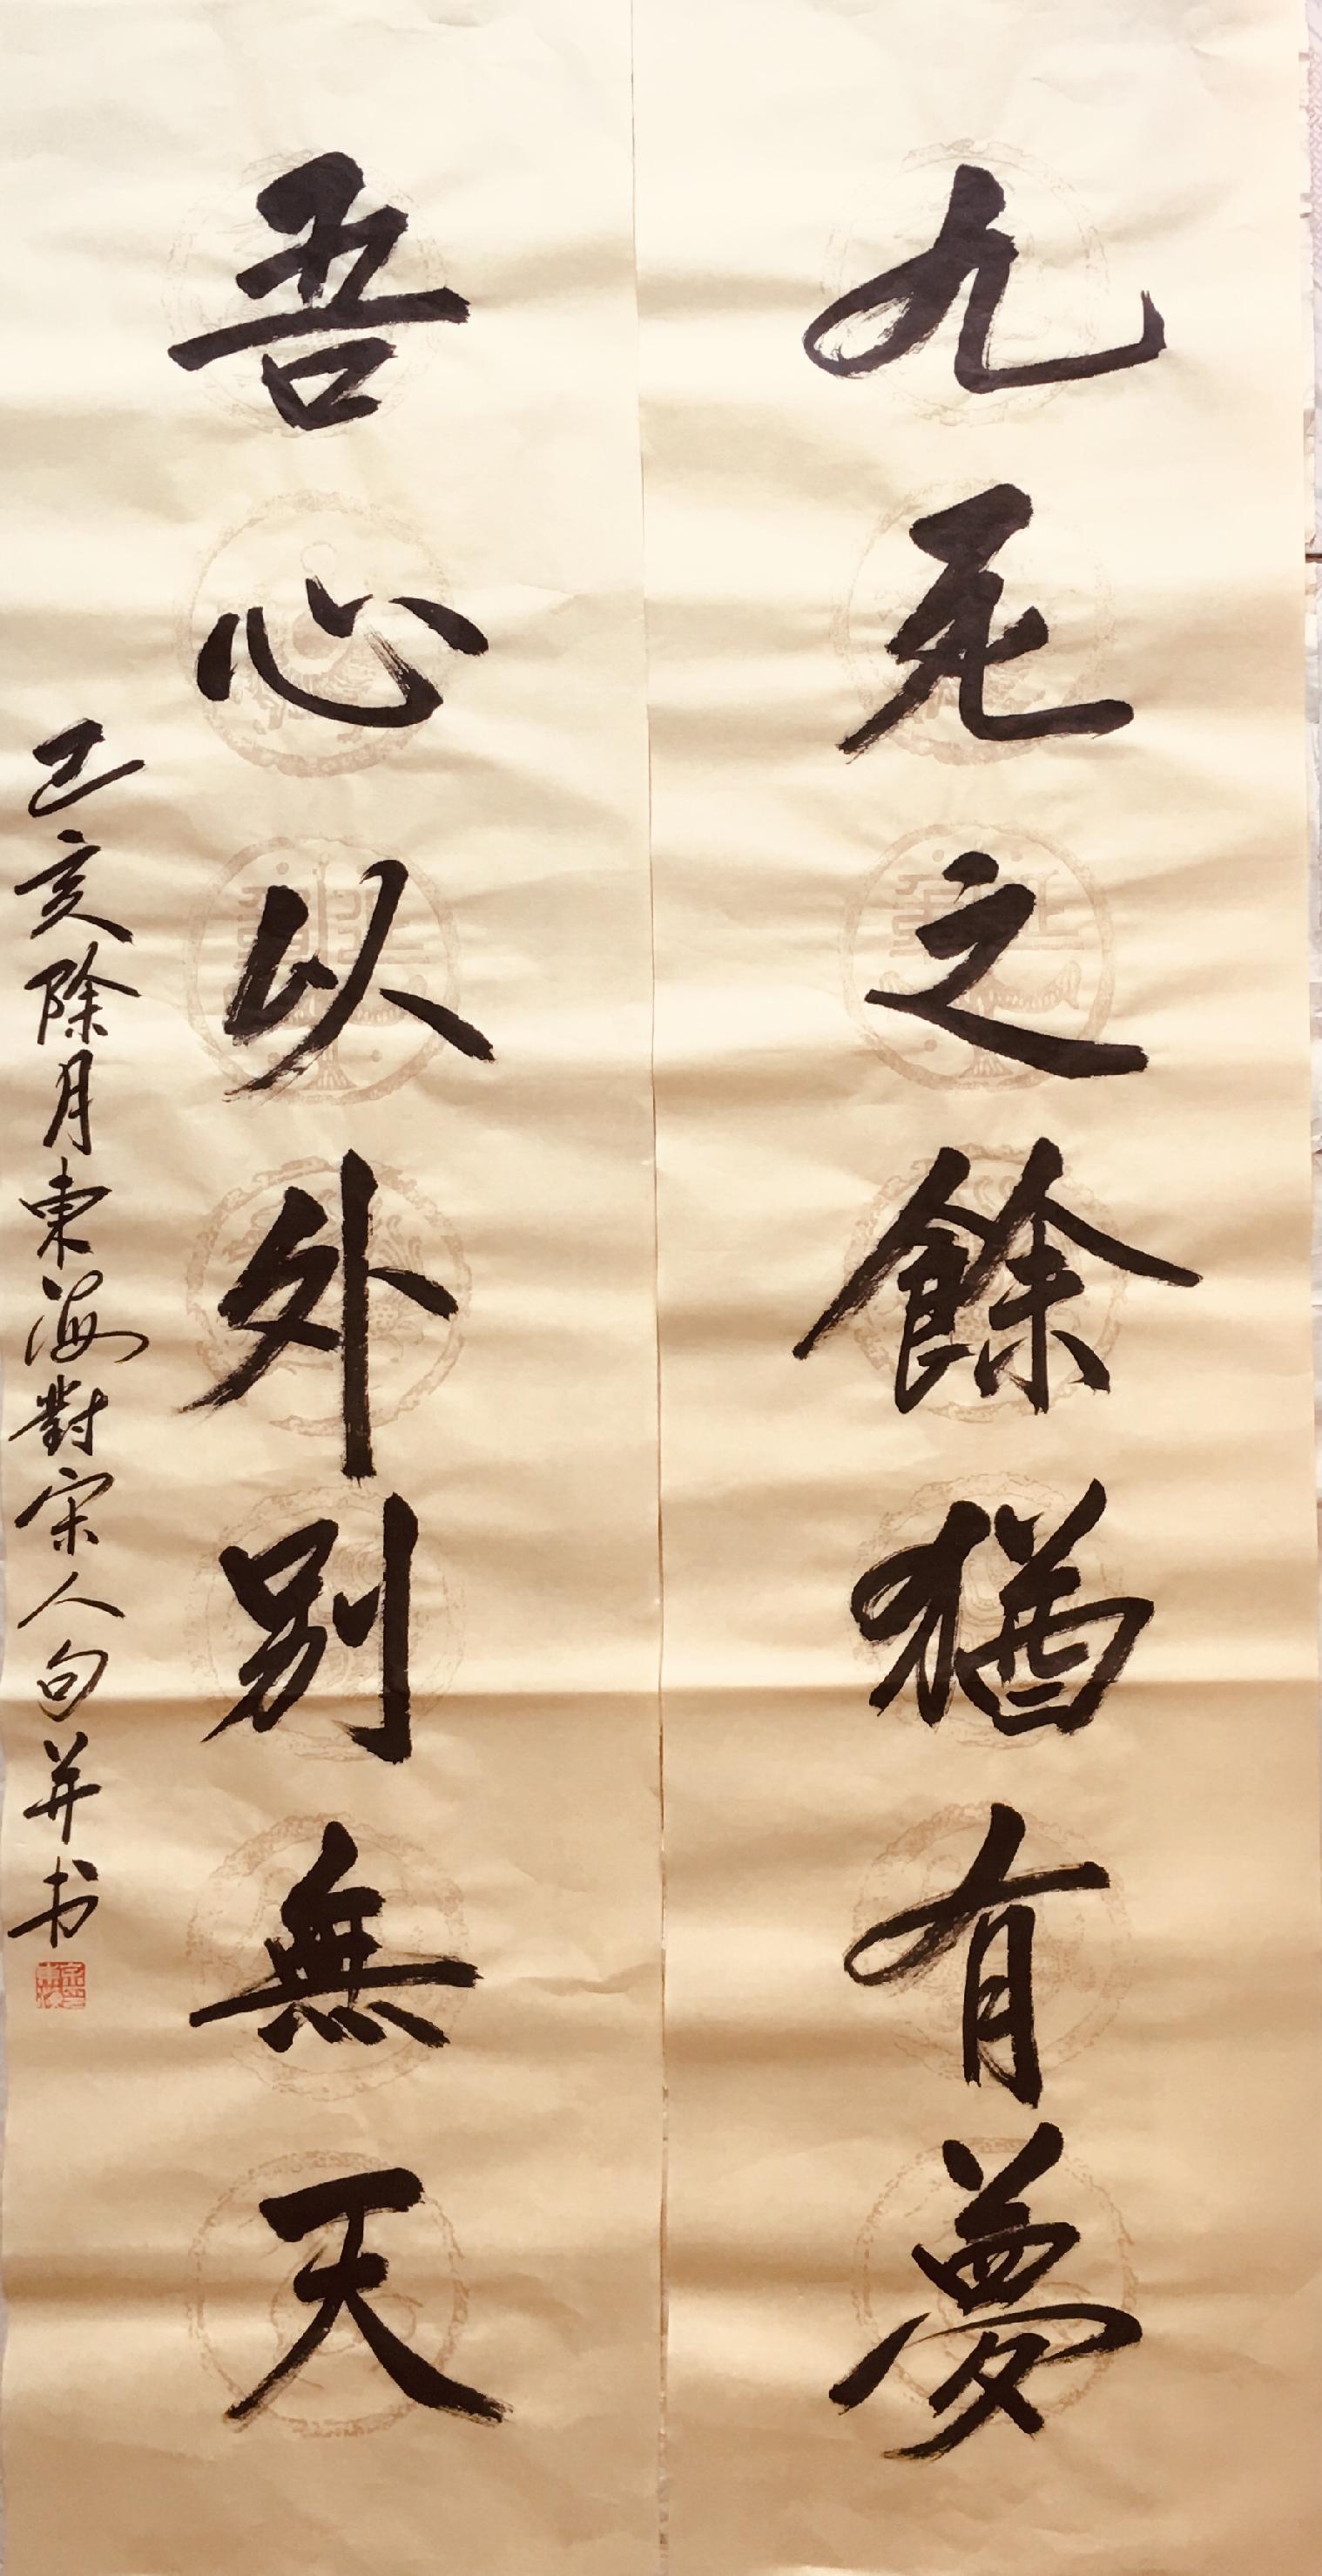 九死之餘猶有夢
吾心以外別無天
己亥除月東海對宋人句并书